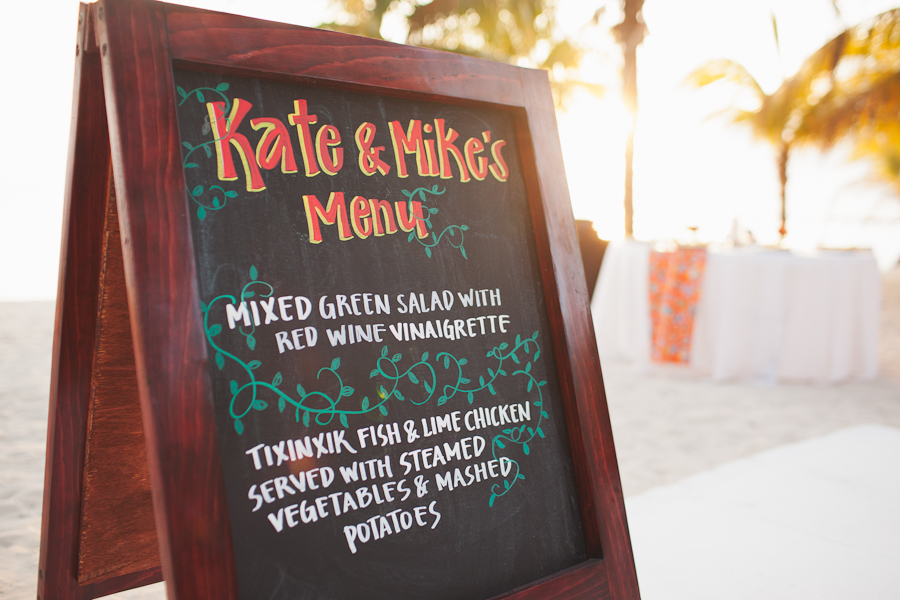 Kate & Mike's
Menu
MIXED GREEN SALAD WITH
RED WINE VINAIGRETTE
TIXINXIK FISH & LIME CHICKEN
SERVED WITH STEAMED
VEGETABLES & MASHED
POTATOES